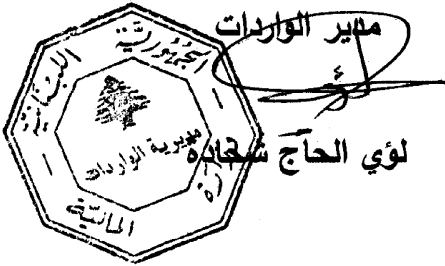 مدير الواردات
لؤي الحاج شحاده
الجمهورية اللبنانية
وزارة المالية
مديرية الواردات